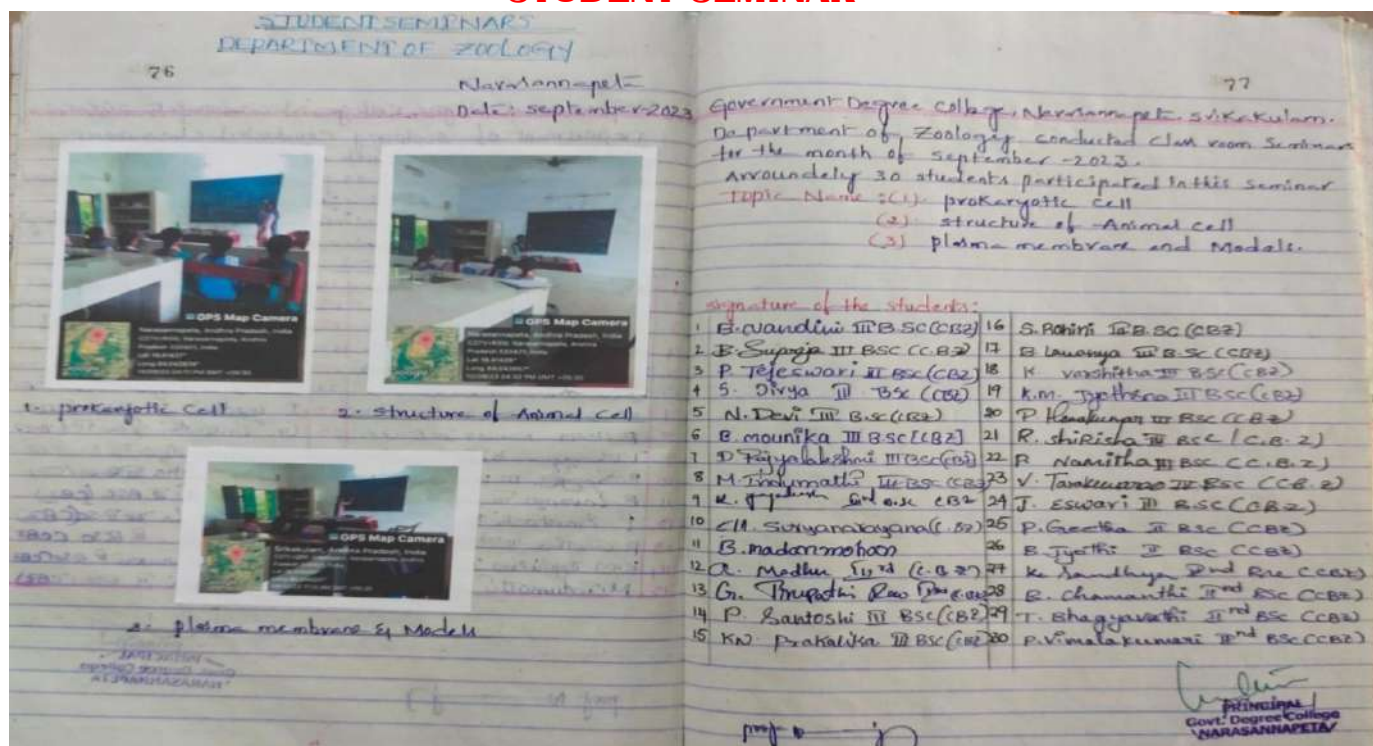 STUDENT SEMINAR
STUDENT SEMINARS
DEPARTMENT OF ZOOLOGY
76
Narsannapet
Date: september-2023
GPS Map Camera
Narasannapeta, Andhra Pradesh, India
GPS Map Camera
Narasannapeta, Andhra Pradesh, India
1. prokaryotic cell
2. structure of Animal cell
GPS Map Camera
Srikakulam, Andhra Pradesh, India
3. plasma membrane & Models
PRINCIPAL
Govt. Degree College
NARASANNAPETA
77
Government Degree College, Narsannapet, srikakulam.
Department of Zoology conducted class room Seminars
for the month of september -2023.
Arroundely 30 students participated in this seminar
Topic Name :(1). prokaryotic cell
(2) structure of Animal cell
(3) plasma membrane and Models.
signature of the students:
1 B. Nandini III B.SC(CBZ)
2 B. Supraja III BSC (C.B.Z)
3 P. Tejeswari III BSc(CBZ)
4 S. Divya III BSc (CBZ)
5 N. Devi III B.Sc(CBZ)
6 B. mounika III B.SC[CBZ]
7 D Rajyalakshmi III BSc(CBZ)
8 M. Indumathi III BSC (CBZ)
9 K. CBZ
10 CH. Suryanarayana(C.BZ)
11 B. madanmohan
12 R. Madhu IIIrd (C.B.Z)
13 G. Thrupathi Rao
14 P. Santoshi III BSC(CBZ)
15 KN. Prakalika III BSC(CBZ)
16 S. Rohini III B.SC (CBZ)
17 B Lavanya III B.Sc (CBZ)
18 K varshitha III B.SC(CBZ)
19 K.M. Jyothsna III BSC(CBZ)
20 P III BSC (CBZ)
21 R. shiRisha III BSC (C.B.Z)
22 P Namitha III BSC (C.B.Z)
23 V. Tarakeswarao III BSc (C.B.Z)
24 J. Eswari III B.SC(CBZ)
25 P. Geetha II BSC (CBZ)
26 B Jyothi II BSC (CBZ)
27 K. Sandhya 2nd BSc (CBZ)
28 B. Chamanthi IInd BSC (CBZ)
29 T. Bhagyavathi IInd BSC (CBZ)
30 P. Vimalakumari IInd BSC(CBZ)
PRINCIPAL
Govt. Degree College
NARASANNAPETA